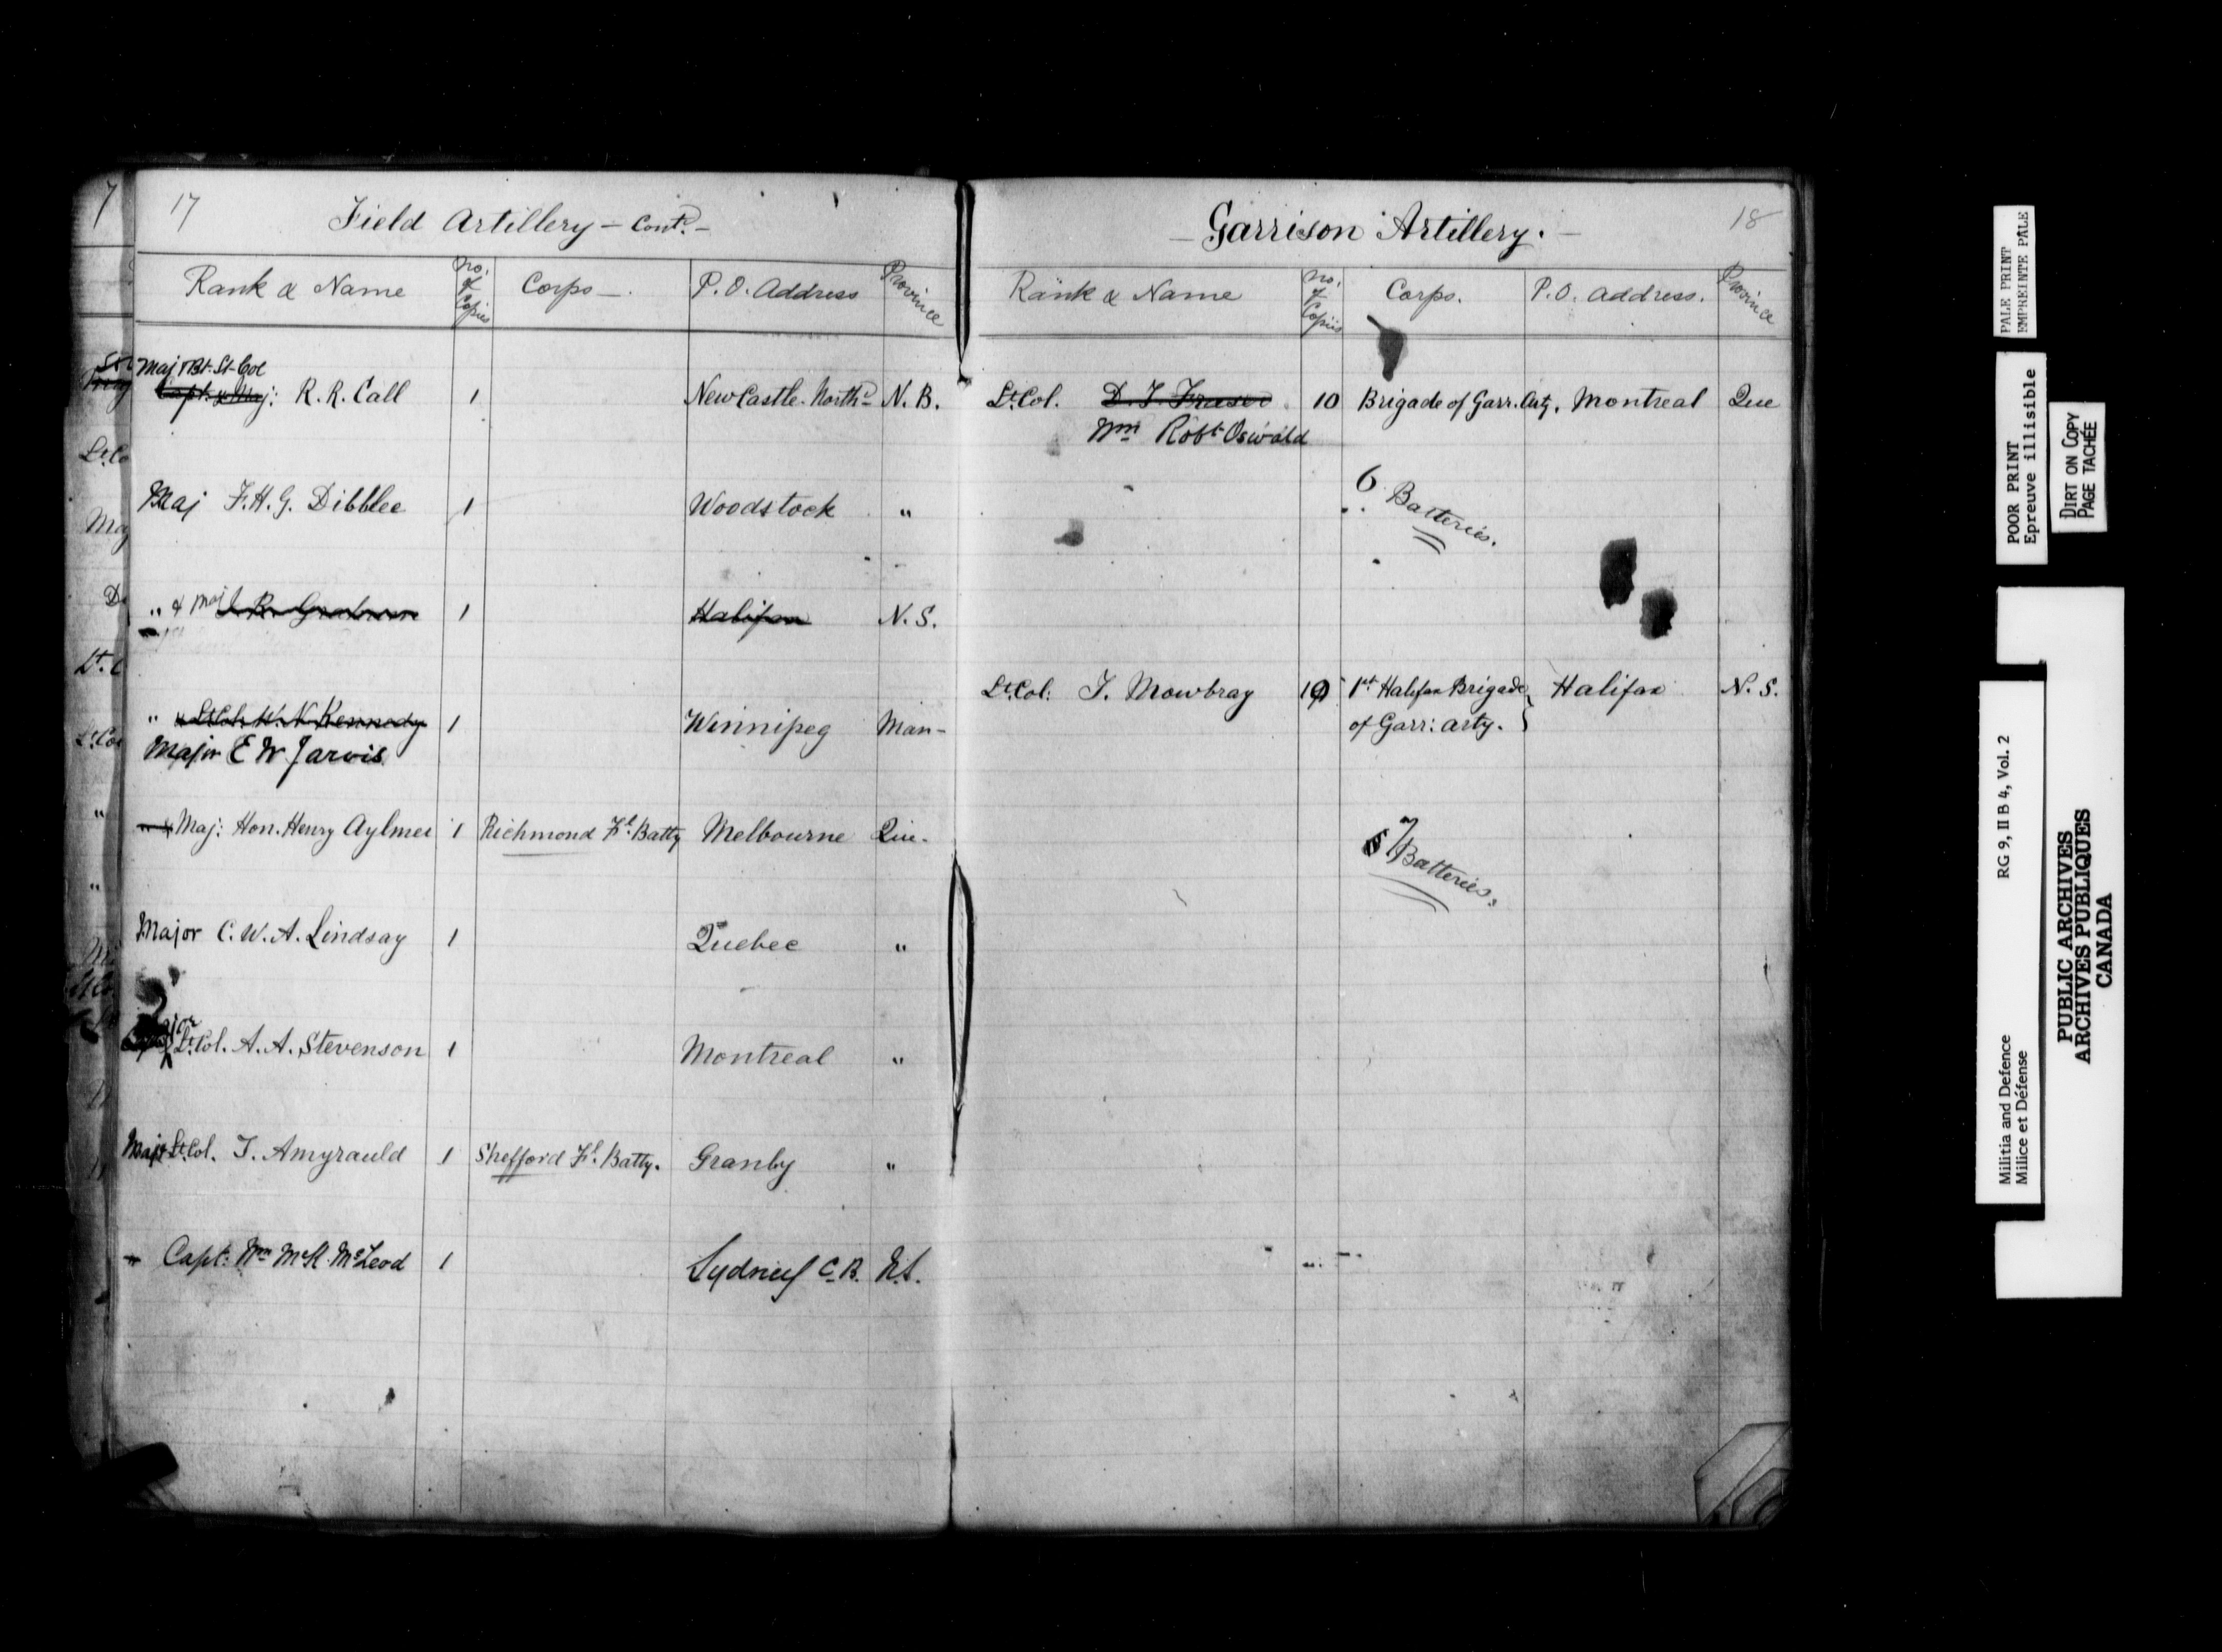 17
Field Artillery - Cont.d -
Rank & Name No. of Copies Corps - P. O. Address Province
Maj & Bt. Lt. Col
Capt. & Maj: R. R. Call 1 NewCastle. North.d N. B.
Maj F. H. G. Dibblee 1 Woodstock "
" & Maj R. Graham 1 Halifax N. S.
" & Lt. Col. W. N. Kennedy 1 Winnipeg Man-
Major E W Jarvis
" & Maj: Hon. Henry Aylmer 1 Richmond Fd. Batty Melbourne Que.
Major C. W. A. Lindsay 1 Quebec "
Major
Lt. Col. A. A. Stevenson 1 Montreal "
Maj & Lt. Col. T. Amyrauld 1 Shefford Fd. Batty. Granby "
" Capt: Wm McK. McLeod 1 Sydney C. B. N.S.
18
- Garrison Artillery. -
Rank & Name No. of Copies Corps. P. O. Address. Province
Lt. Col. D. T. Fraser 10 Brigade of Garr. Arty. Montreal Que
Wm Robt Oswald
6 Batteries.
Lt. Col: T. Mowbray 1st Halifax Brigade } Halifax N. S.
of Garr: Arty.
7 Batteries.
PALE PRINT
EMPREINTE PALE
POOR PRINT
Epreuve illisible
DIRT ON COPY
PAGE TACHÉE
Militia and Defence RG 9, II B 4, Vol. 2
Milice et Défense
PUBLIC ARCHIVES
ARCHIVES PUBLIQUES
CANADA